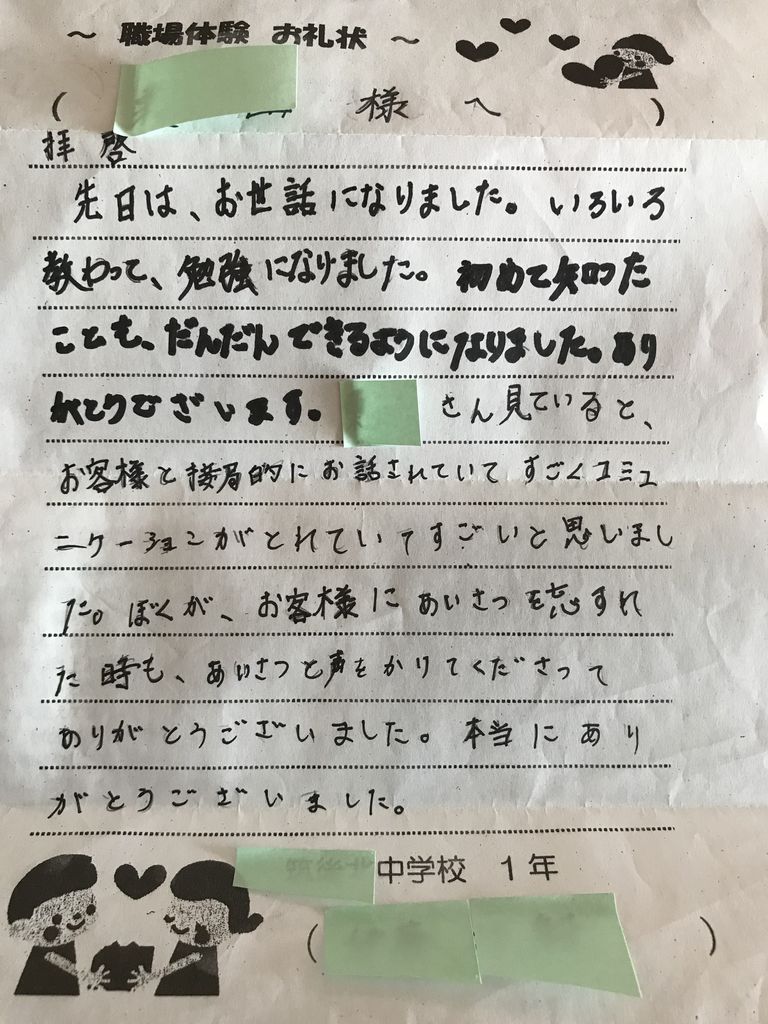 ～ 職場体験 お礼状 ～
( 様 へ )
拝啓
先日は、お世話になりました。いろいろ
教わって、勉強になりました。初めて知った
ことも、だんだんできるようになりました。あり
がとうございます。 さん見ていると、
お客様と接局的にお話されていてすごくコミュ
ニケーションがとれていてすごいと思いまし
た。ぼくが、お客様にあいさつを忘すれ
た時も、あいさつと声をかりてくださって
ありがとうございました。本当にあり
がとうございました。
中学校 1年
( )